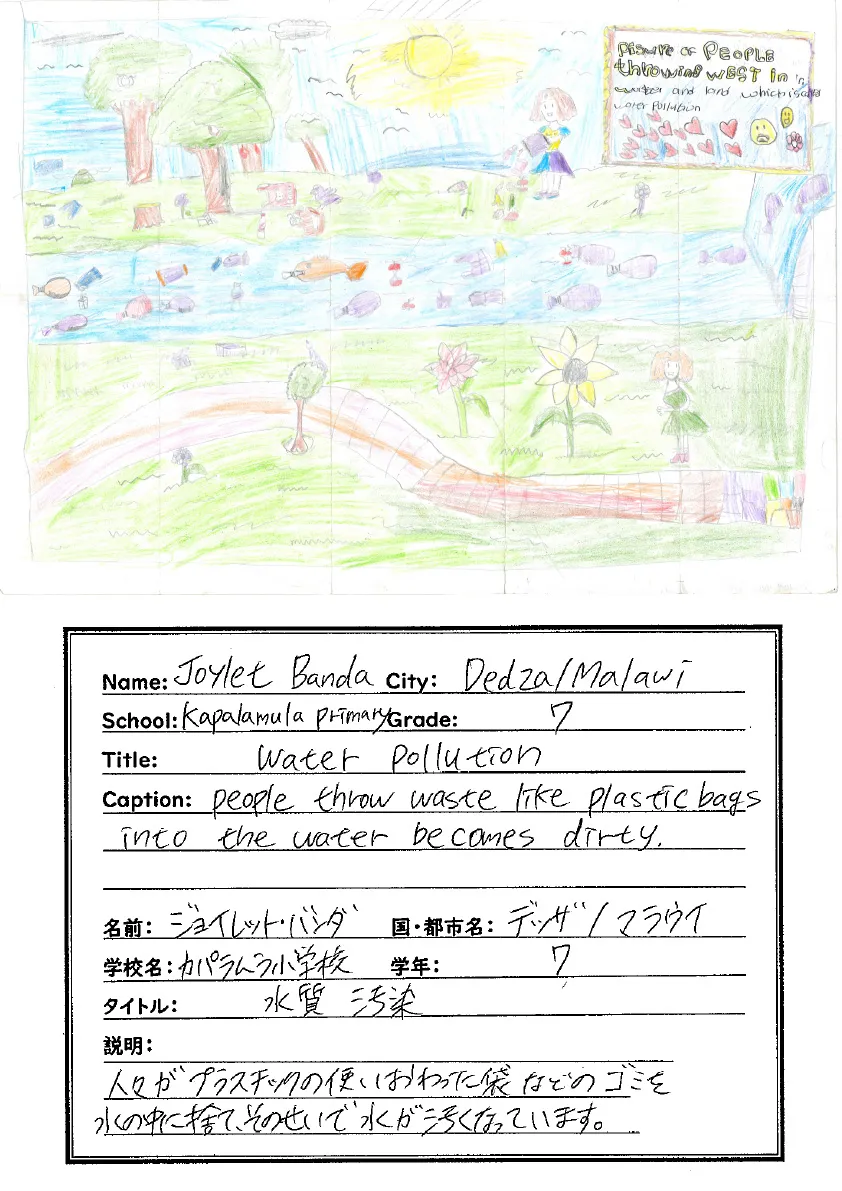 Picture of PEOPLE
throwing WEST in
water and land which is called
water Pollution
Name: Joylet Banda City: Dedza/Malawi
School: Kapalamula primary Grade: 7
Title: Water pollution
Caption: people throw waste like plastic bags
into the water becomes dirty.
名前: ジョイレット・バンダ 国・都市名: デッザ / マラウイ
学校名: カパラムラ小学校 学年: 7
タイトル: 水質 汚染
説明:
人々が プラスチックの使いおわった袋 などの ゴミを
水の中に捨て、そのせいで 水が汚くなっています。